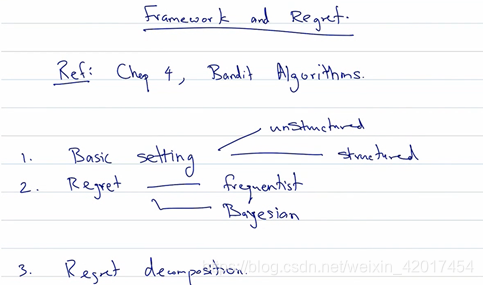 Framework and Regret.
Ref: Chap 4, Bandit Algorithms.
unstructured
1. Basic setting structured
2. Regret frequentist
Bayesian
https://blog.csdn.net/weixin_42017454
3. Regret decomposition.